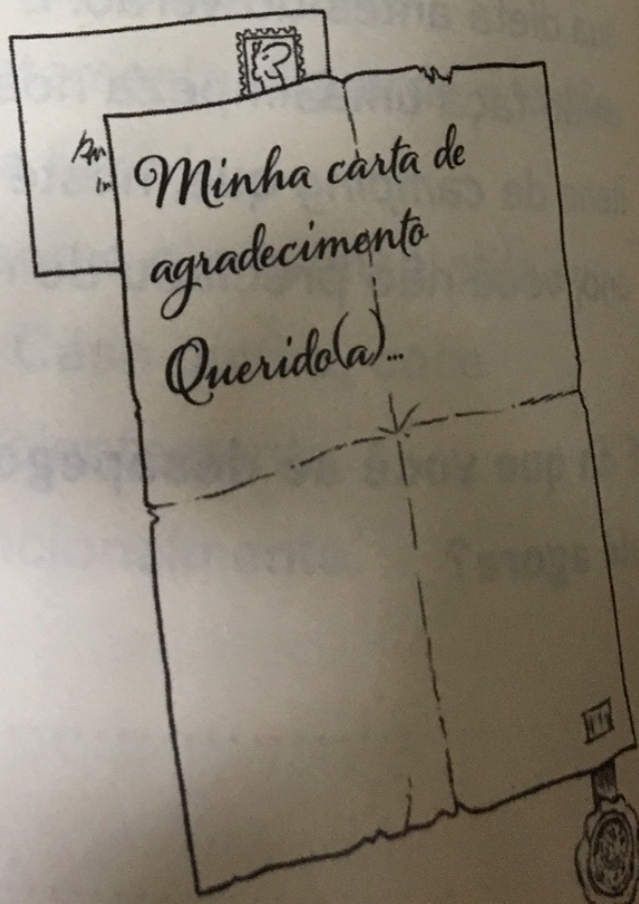 Minha carta de
agradecimento
Querido(a)...